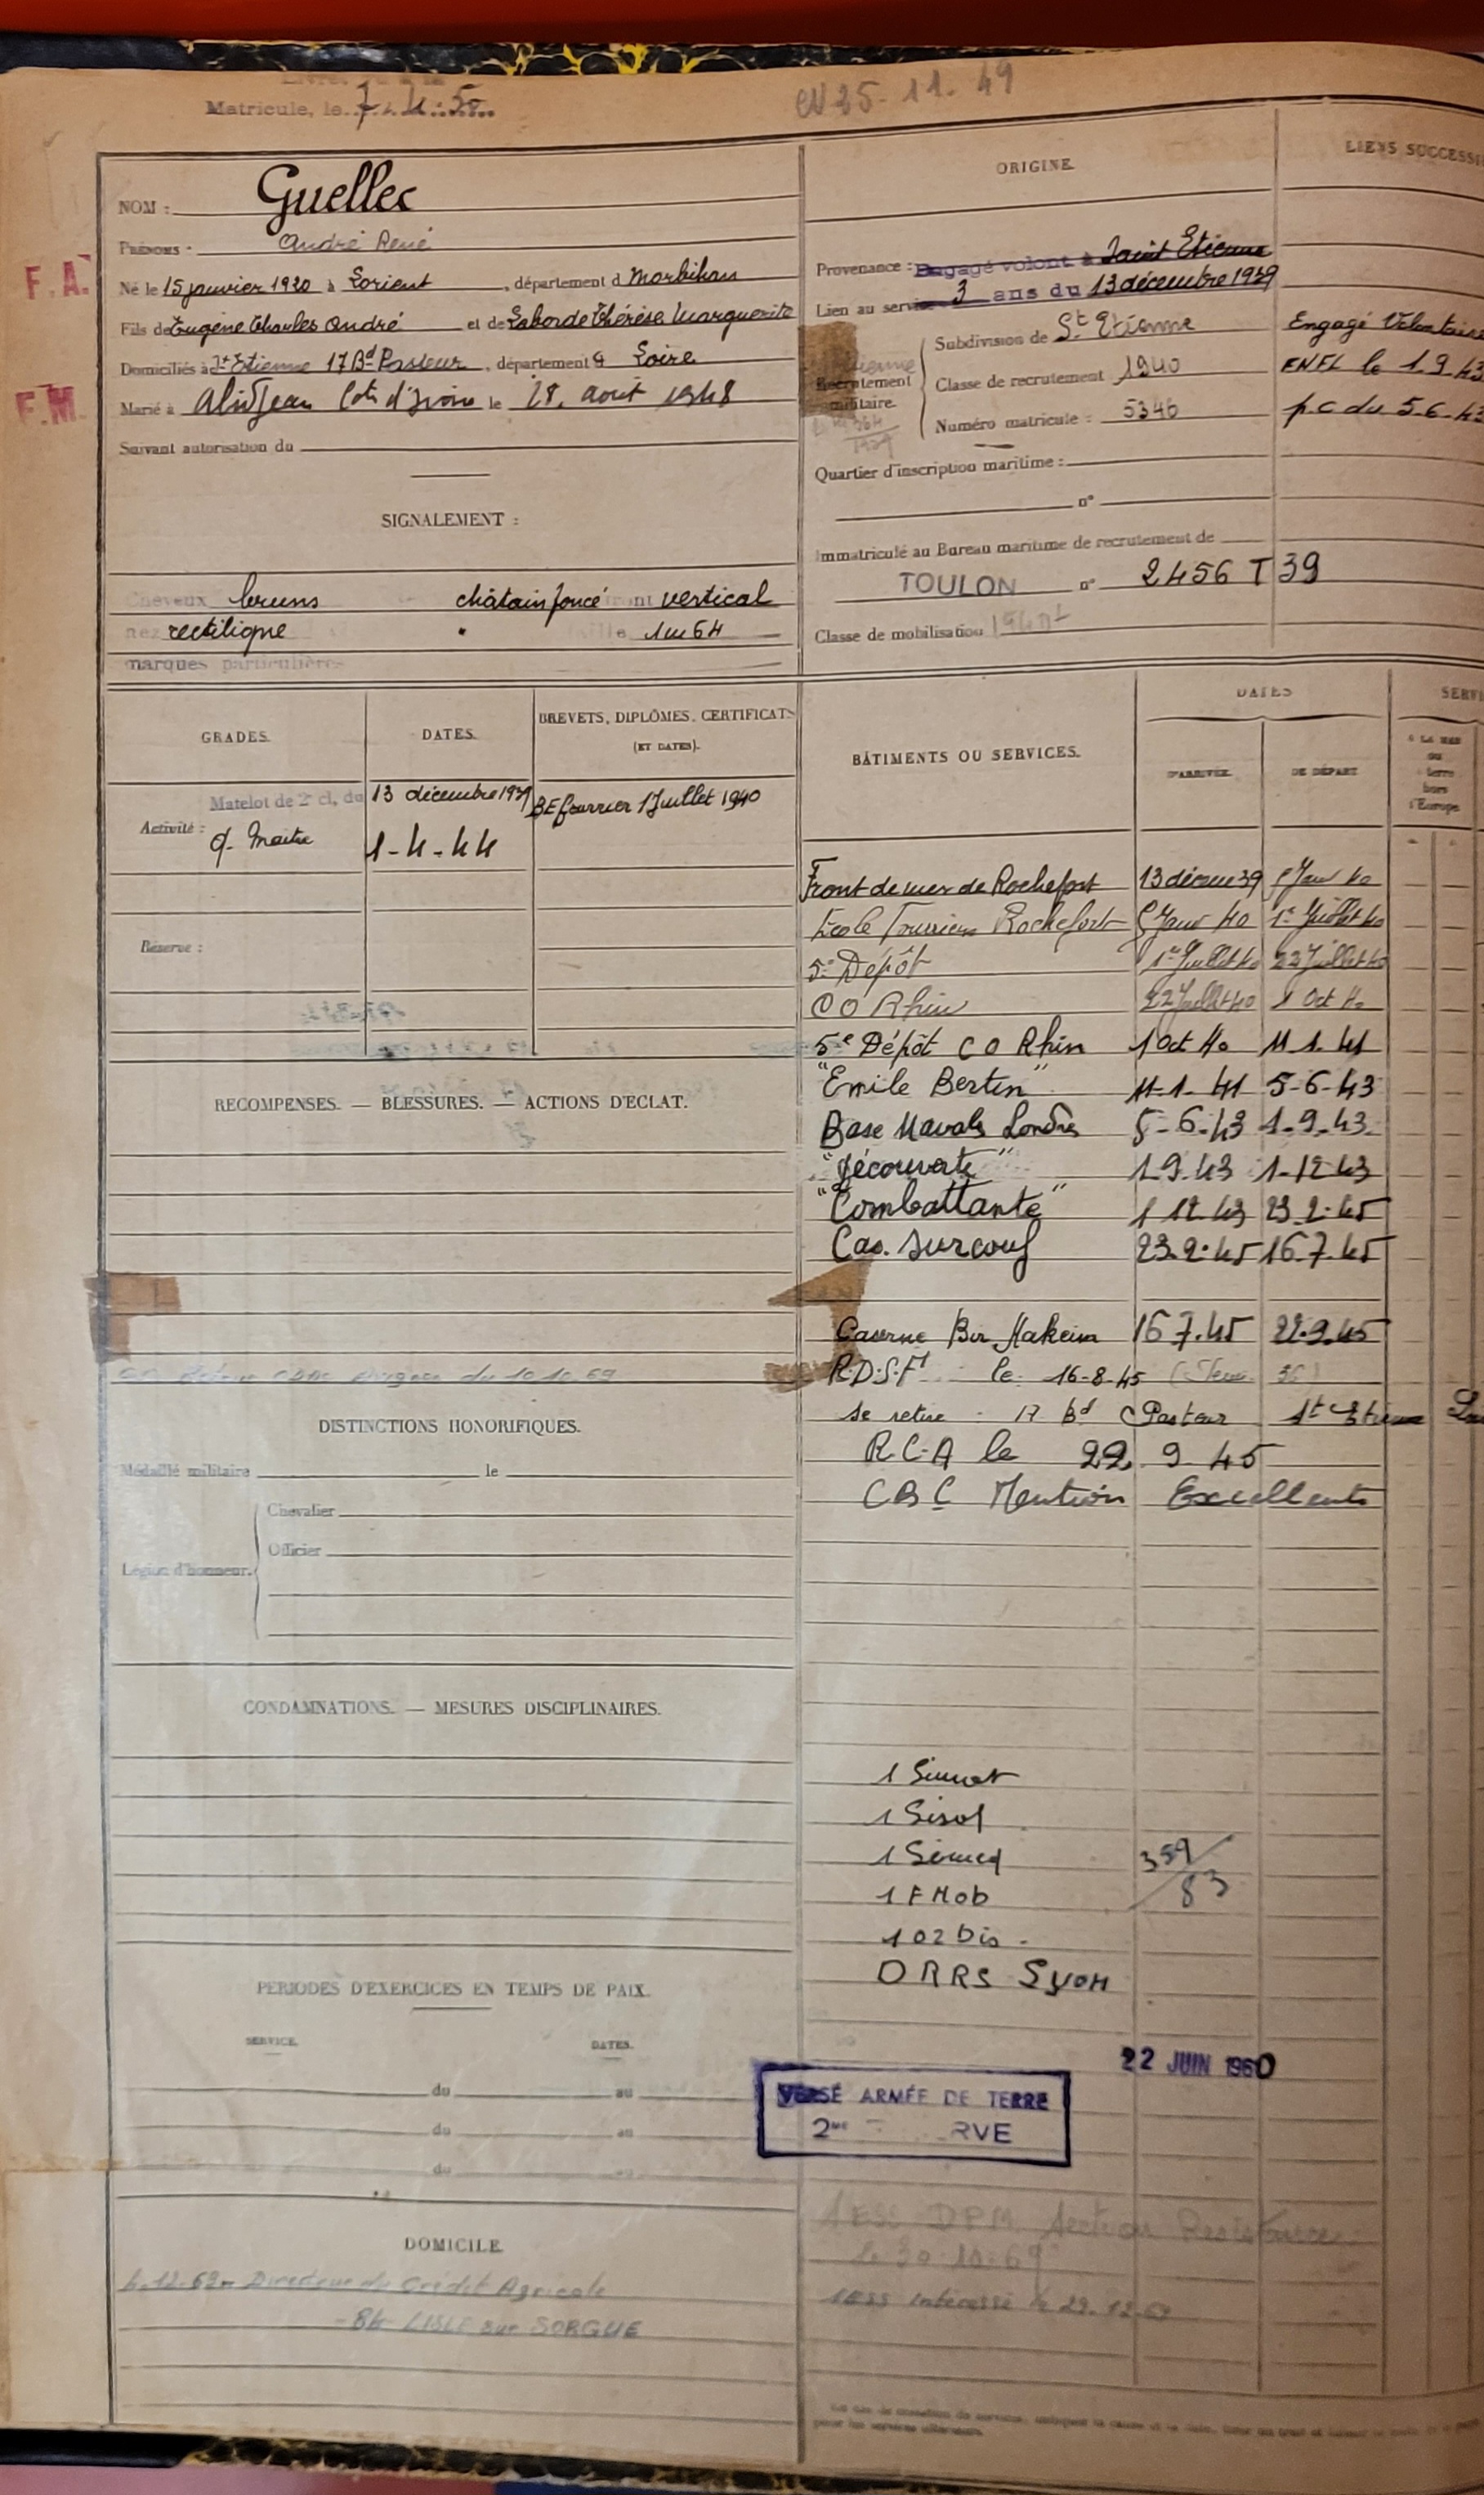 Matricule, le 7.4.50
25-11-49
NOM : Guellec
Prénoms : André René
F.A.
Né le 15 janvier 1920 à Lorient, département d Morbihan
Fils de Eugène Charles André et de Laborde Thérèse Marguerite
Domiciliés à St Etienne 17 Bd Pasteur, département d Loire
F.M.
Marié à Abidjean Cote d'Ivoire le 28. Août 1948
Suivant autorisation du
SIGNALEMENT :
Cheveux bruns châtain foncé front vertical
nez rectiligne taille 1m64
marques particulières
ORIGINE.
LIENS SUCCESSI
Provenance : Engagé volont à Saint Etienne
Lien au service 3 ans du 13 décembre 1939
Recrutement militaire.
Subdivision de St Etienne
Classe de recrutement 1940
Numéro matricule : 5346
Engagé Volontaire
FNFL le 1.9.43
p.c du 5.6.43
Quartier d'inscription maritime :
n°
Immatriculé au Bureau maritime de recrutement de
TOULON n° 2456 T 39
Classe de mobilisation
GRADES. DATES. BREVETS, DIPLÔMES, CERTIFICATS
(ET DATES).
Matelot de 2e cl, du 13 décembre 1939 BE fourrier 1 Juillet 1940
Activité : q. Maitre 1-4-44
Réserve :
RECOMPENSES. — BLESSURES. — ACTIONS D'ECLAT.
du 10.10.69
DISTINCTIONS HONORIFIQUES.
Médaillé militaire le
Légion d'honneur.
Chevalier
Officier
CONDAMNATIONS. — MESURES DISCIPLINAIRES.
PERIODES D'EXERCICES EN TEMPS DE PAIX.
SERVICE. DATES.
du au
du au
du au
DOMICILE
Directeur du Crédit Agricole
84 LISLE sur SORGUE
BÂTIMENTS OU SERVICES. DATES
D'ARRIVÉE. DE DÉPART
SERVI
A LA MER
ou
à terre
hors
d'Europe
Front de mer de Rochefort 13 décem 39 5 Janv 40
Ecole Fourriers Rochefort 5 Janv 40 1er Juillet 40
5e Dépôt 1er Juillet 40 22 Juillet 40
CO Rhin 22 Juillet 40 1 Oct 40
5e Dépôt CO Rhin 1 Oct 40 11.1.41
"Emile Bertin" 11-1-41 5-6-43
Base Navale Londres 5-6-43 1-9-43
"Découverte" 1-9-43 1-12-43
"Combattante" 1 12.43 23.2.45
Cas. Surcouf 23.2.45 16.7.45
Caserne Bir Hakeim 16 7.45 22.9.45
R.D.S.F le 16-8-45
se retire 17 bd Pasteur St Etienne
R.C.A le 22 9 45
CBC Mention Excellente
1 Sisol
1 Simed
1 F Mob
102 bis
ORRS Lyon
359/83
22 JUIN 1960
VERSÉ ARMÉE DE TERRE
2me RVE
DPM Section Résistance
le 30.10.69
intéressé le 29.12.69